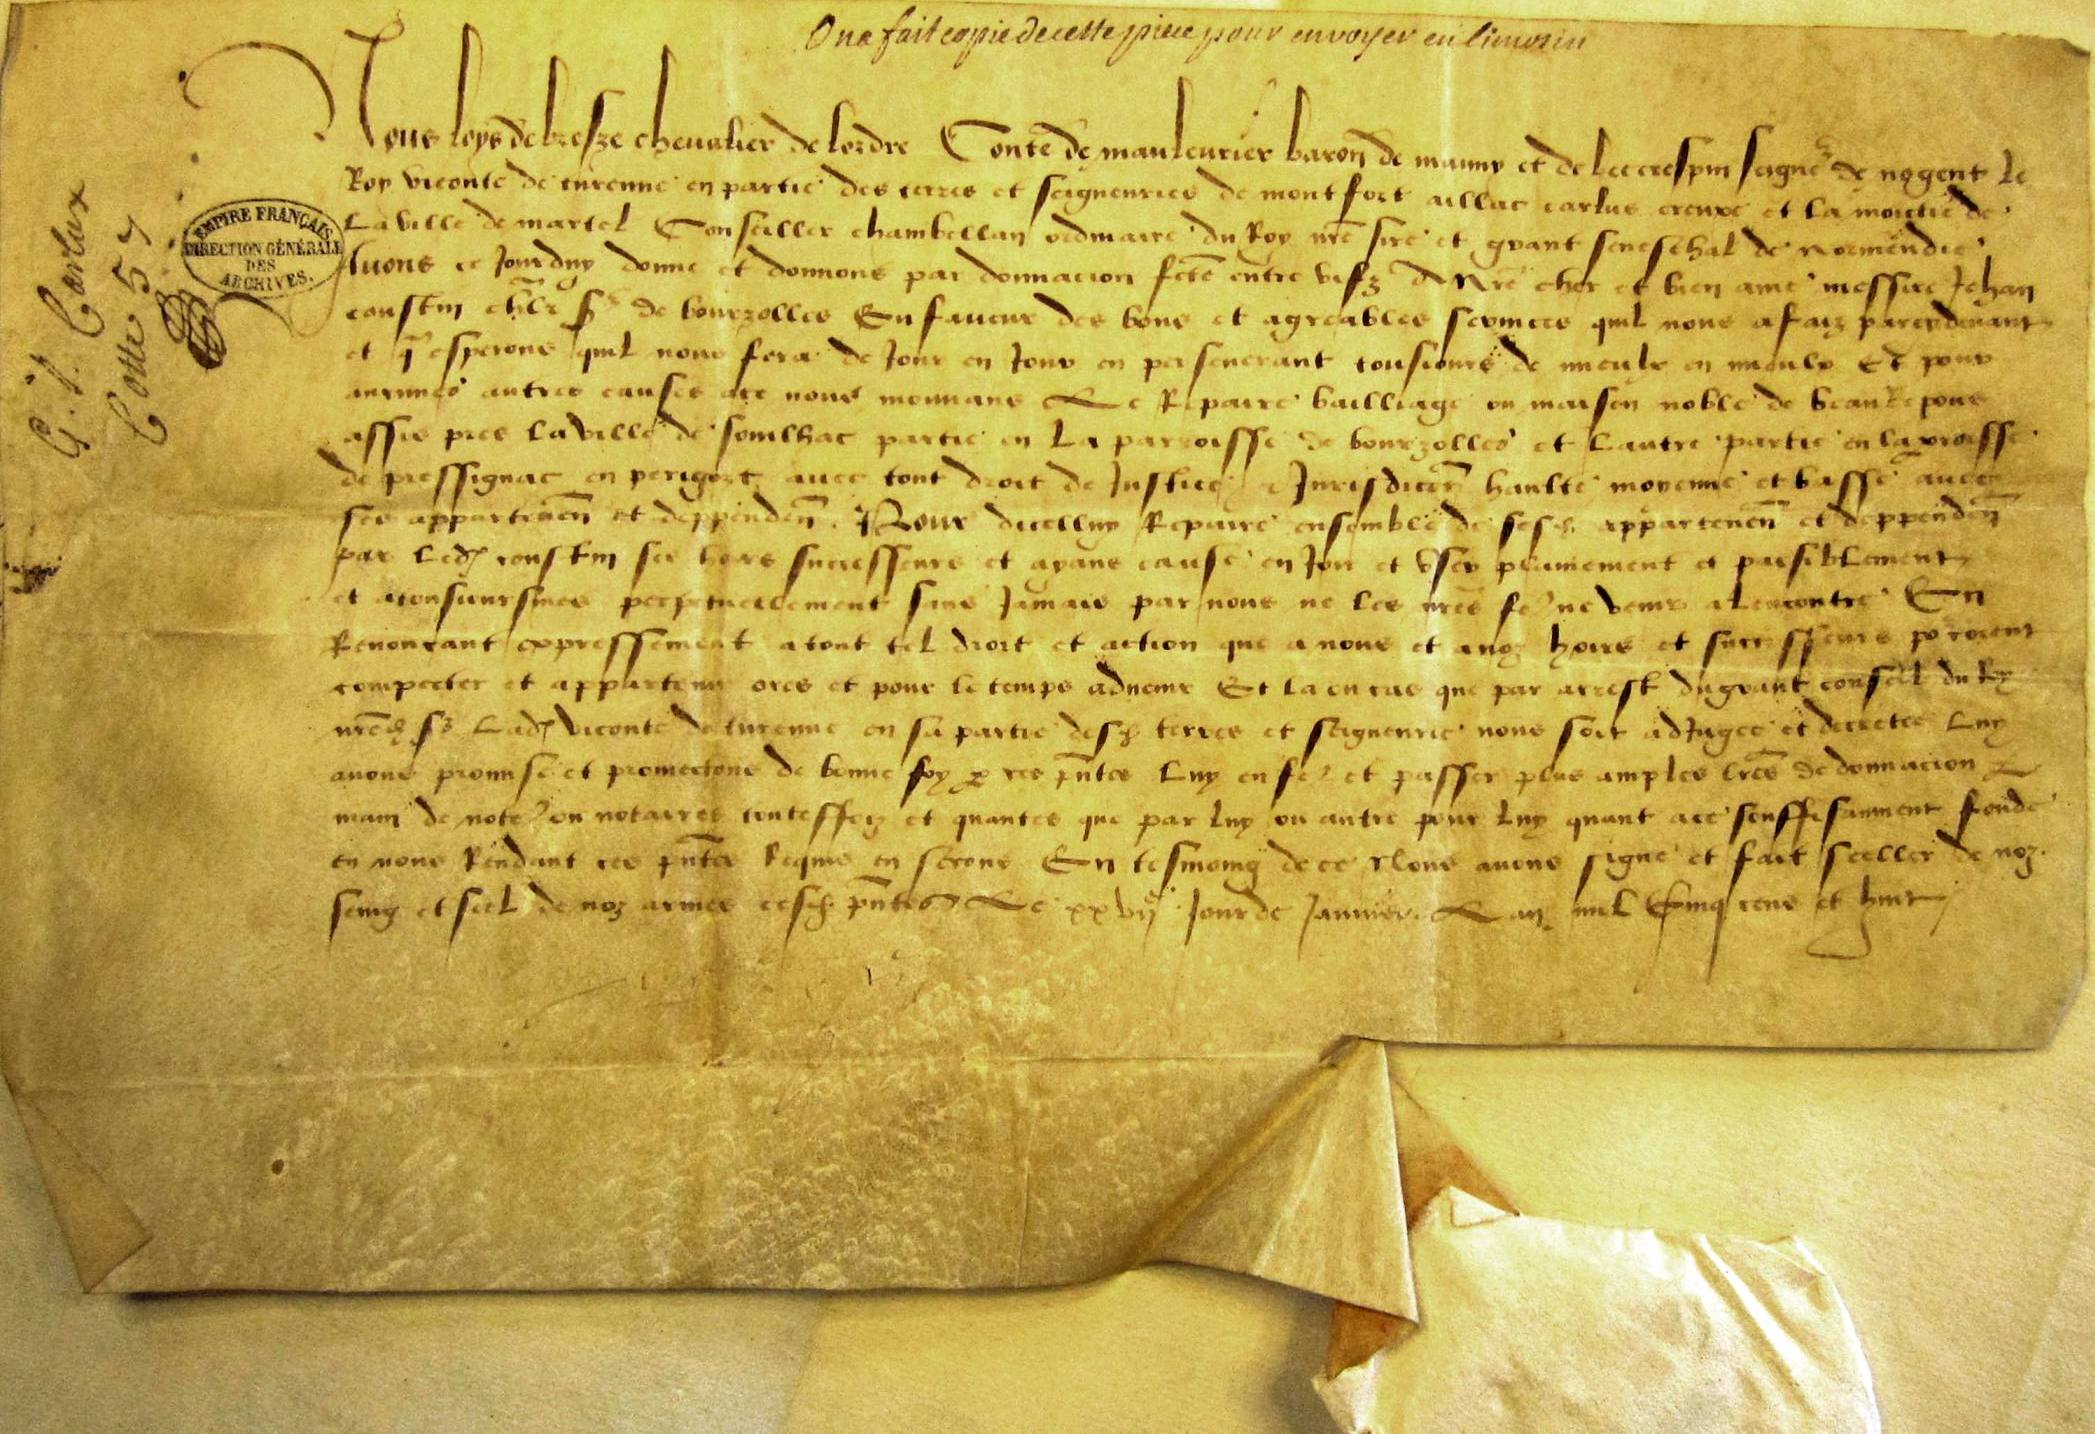 On a fait copie de cette piece pour envoyer en limosin
Nous loys de bresze chevalier de lordre Conte de maulevrier baron de mauny et de bec crespin seigne de nogent le
Roy viconte de turenne en partie des terres et seigneuries de montfort aillac carlus creuxe et la moictie de
la ville de martel Conseiller chambellan ordinaire du Roy nre sire et grant seneschal de normendie
Avons ce Jourduy donne et donnons par donnacion fcte entre vifz A Nre cher et bien ame messire Jehan
constin chlr sr de bourzolles En faveur des bons et agreables services quil nous a faiz par cy devant
et q esperons quil nous fera de Jour en Jour en perseverant tousiours de mieulx en mieulx Et pour
aucunes autres causes ace nous mouvans Le Repaire bailliage ou maison noble de
assis pres la ville de soulhac partie en la parroisse de bourzolles et lautre partie en la proisse
de pressignac en perigort avec tout droit de Justice Jurisdicon haulte moyenne et basse avec
ses appartenen et deppenden Pour dicelluy Repaire ensemble de sesd appartenen et deppenden
par led constin ses hoirs successeurs et ayans cause en Joir et user plainement et paisiblement
et atousioursmes perpetuellement sans Jamais par nous ne les nres ne venir alencontre En
Renoncant expressement a tout tel droit et action que a nous et a noz hoirs et successeurs porroient
competter et appartenir ores et pour le temps advenir Et la ou cas que par arrest du grant conseil du Roy
nred sr lad viconte de turenne en sa partie desd terres et seigneurie nous soit adJugee et decretee luy
avons promise et promectons de bonne foy p ces pntes luy en fe et passer plus amples lres de donnacion
main de note ou notaires toutesfoiz et quantes que par luy ou autre pour luy quant ace souffisanment fonde
en nous Rendant ces pntes Requis en serons En tesmoing de ce Nous avons signe et fait seeller de noz
seing et seel de noz armes cesd pntes Le xxvij Jour de Janvier Lan mil Cinq cens et huit
G.d. Carlux
Cotte 57
EMPIRE FRANÇAIS
DIRECTION GÉNÉRALE
DES
ARCHIVES.